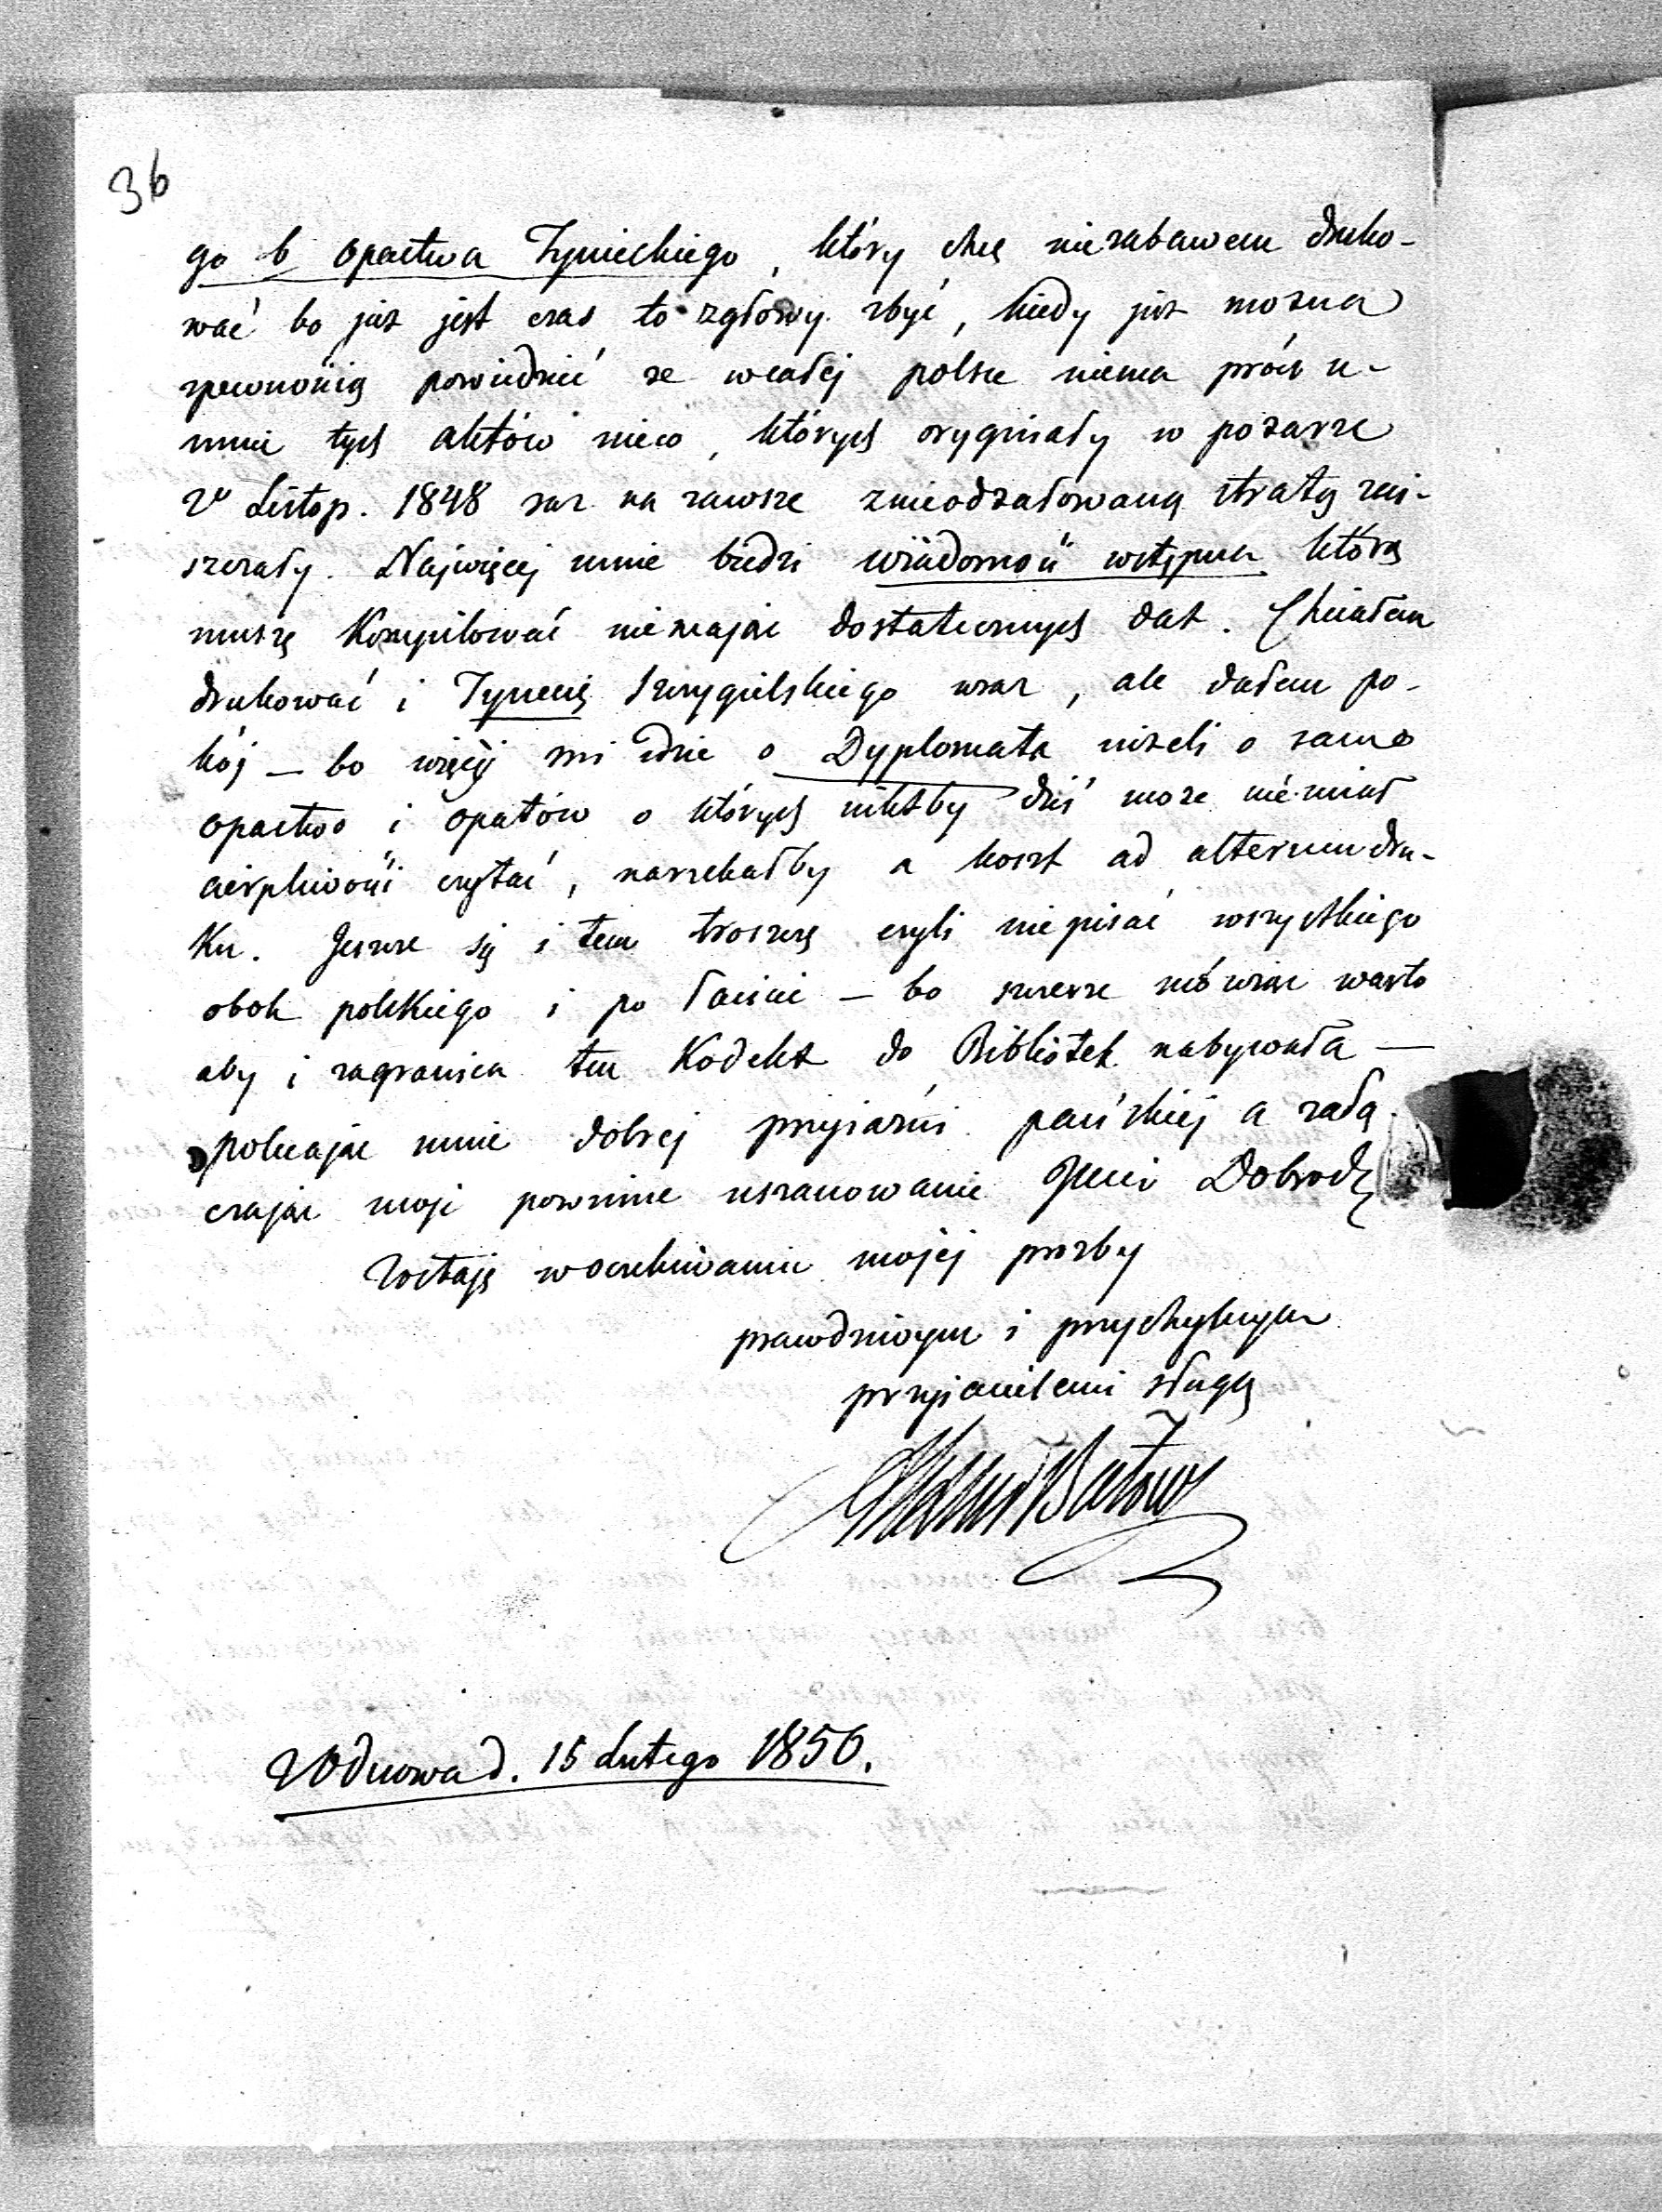 36
go b opactwa Tynieckiego, który chcę niezabawem druko-
wać bo już jest czas to zgłowy zbyć, kiedy już można
zpewnością powiedzieć ze wcałej polsce niema prócz u-
mnie tych aktów nieco, których oryginały w pożarze
2º Listop. 1848 raz na zawsze znieodżałowaną stratą zni-
szczały. Najwięcej mnie biedzi wiadomość wstępna którą
muszę Kompilować niemając dostatecznych dat. Chciałem
drukować i Tynecię Szczygielskiego wraz, ale dałem po-
kój — bo więcej mi idzie o Dyplomata niżeli o samo
opactwo i opatów o których niktby dziś może niemiał
cierpliwości czytać, narzekałby a koszt ad alterum dru-
ku. Jeszcze się i tem troszczę czyli niepisać wszystkiego
obok polskiego i po łacinie — bo szczerze mówiąc warto
aby i zagranica ten Kodekt do Bibliotek nabywała —
polecając mnie dobrej przyjaźni pańskiej a załą-
czając moje powinne uszanowanie Jmci Dobrodz
Zostaję woczekiwaniu mojej prozby
prawdziwym i przychylnym
przyjacielem i sługą
Odnowa d. 15 Lutego 1856.